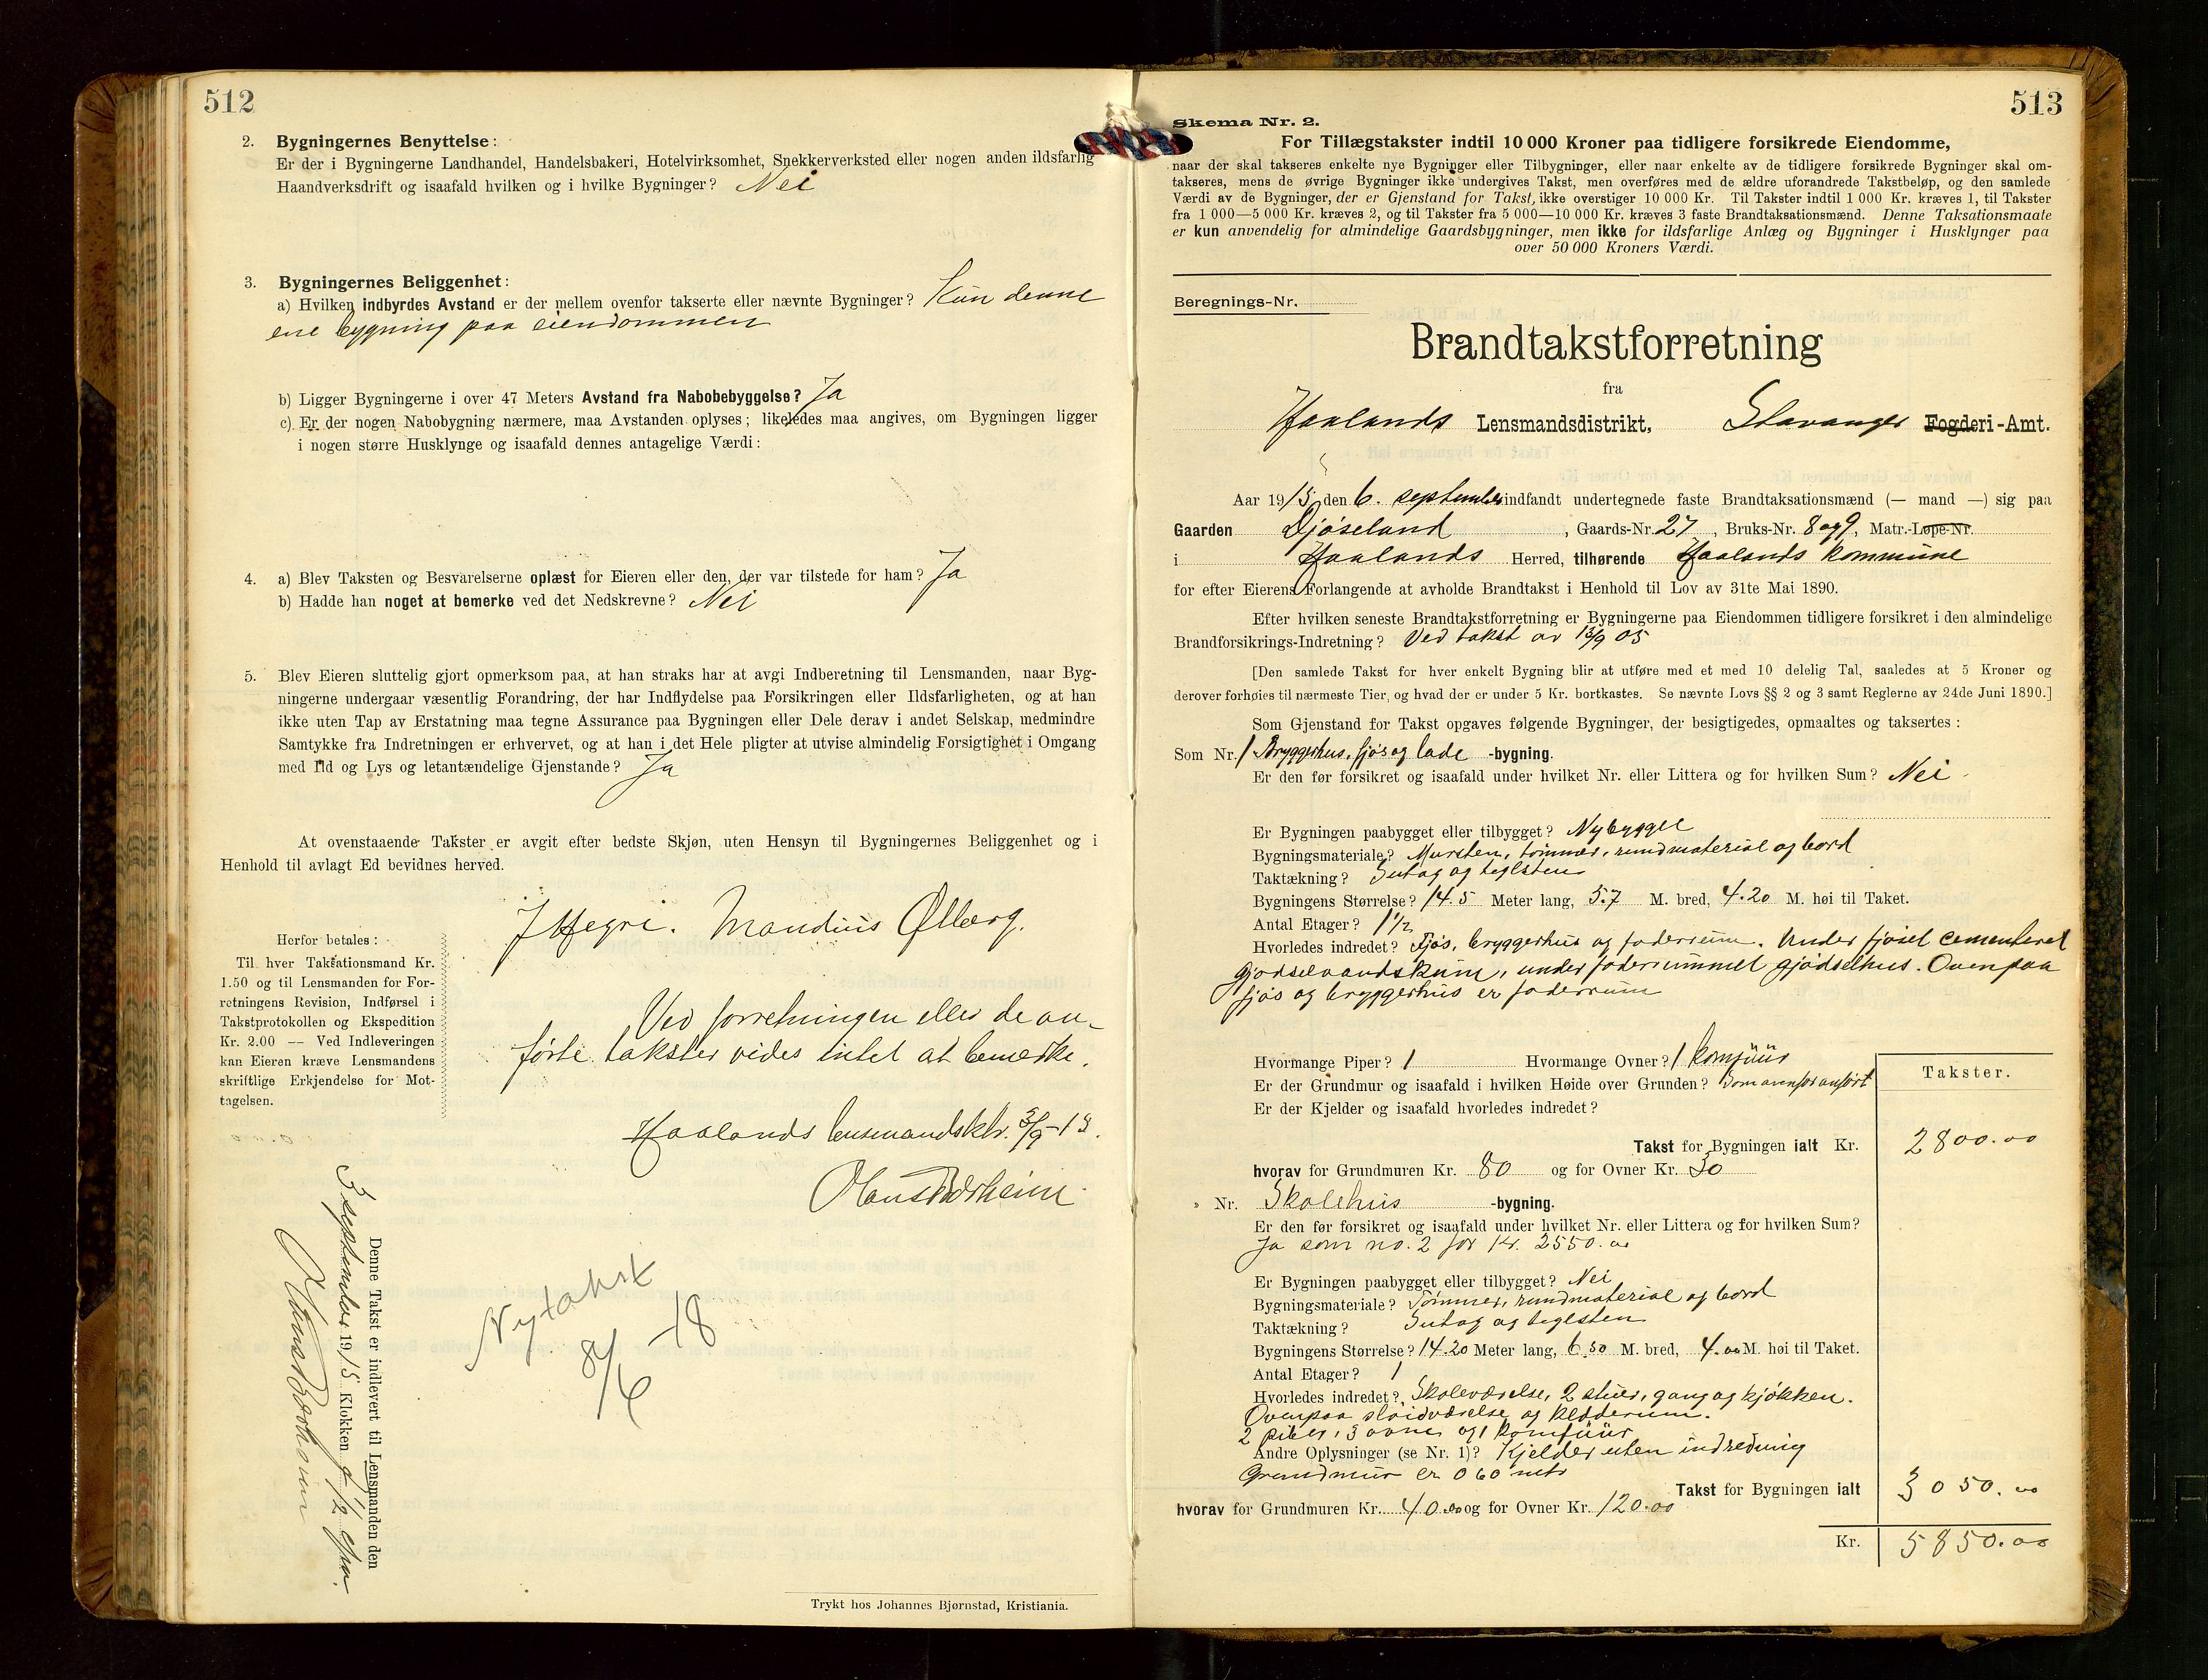 512
2. Bygningernes Benyttelse:
Er der i Bygningerne Landhandel, Handelsbakeri, Hotelvirksomhet, Snekkerverksted eller nogen anden ildsfarlig
Haandverksdrift og isaafald hvilken og i hvilke Bygninger? Nei
3. Bygningernes Beliggenhet:
a) Hvilken indbyrdes Avstand er der mellem ovenfor takserte eller nævnte Bygninger? Kun denne
ene bygning paa eiendommen
b) Ligger Bygningerne i over 47 Meters Avstand fra Nabobebyggelse? Ja
c) Er der nogen Nabobygning nærmere, maa Avstanden oplyses; likeledes maa angives, om Bygningen ligger
i nogen større Husklynge og isaafald dennes antagelige Værdi:
4. a) Blev Taksten og Besvarelserne oplæst for Eieren eller den, der var tilstede for ham? Ja
b) Hadde han noget at bemerke ved det Nedskrevne? Nei
5. Blev Eieren sluttelig gjort opmerksom paa, at han straks har at avgi Indberetning til Lensmanden, naar Byg-
ningerne undergaar væsentlig Forandring, der har Indflydelse paa Forsikringen eller Ildsfarligheten, og at han
ikke uten Tap av Erstatning maa tegne Assurance paa Bygningen eller Dele derav i andet Selskap, medmindre
Samtykke fra Indretningen er erhvervet, og at han i det Hele pligter at utvise almindelig Forsigtighet i Omgang
med Ild og Lys og letantændelige Gjenstande? Ja
At ovenstaaende Takster er avgit efter bedste Skjøn, uten Hensyn til Bygningernes Beliggenhet og i
Henhold til avlagt Ed bevidnes herved.
J Hegri. Mandius Ølberg.
Herfor betales:
Til hver Taksationsmand Kr.
1.50 og til Lensmanden for For-
retningens Revision, Indførsel i
Takstprotokollen og Ekspedition
Kr. 2.00 — Ved Indleveringen
kan Eieren kræve Lensmandens
skriftlige Erkjendelse for Mot-
tagelsen.
Ved forretningen eller de an-
førte takster vides intet at bemerke.
Haalands lensmandsktr.
Nytakst
8/6 -18
Denne Takst er indlevert til Lensmanden den
3 september 1915 Klokken
Trykt hos Johannes Bjørnstad, Kristiania.
513
Skema Nr. 2.
For Tillægstakster indtil 10 000 Kroner paa tidligere forsikrede Eiendomme,
naar der skal takseres enkelte nye Bygninger eller Tilbygninger, eller naar enkelte av de tidligere forsikrede Bygninger skal om-
takseres, mens de øvrige Bygninger ikke undergives Takst, men overføres med de ældre uforandrede Takstbeløp, og den samlede
Værdi av de Bygninger, der er Gjenstand for Takst, ikke overstiger 10 000 Kr. Til Takster indtil 1 000 Kr. kræves 1, til Takster
fra 1 000—5 000 Kr. kræves 2, og til Takster fra 5 000—10 000 Kr. kræves 3 faste Brandtaksationsmænd. Denne Taksationsmaate
er kun anvendelig for almindelige Gaardsbygninger, men ikke for ildsfarlige Anlæg og Bygninger i Husklynger paa
over 50 000 Kroners Værdi.
Beregnings-Nr.
Brandtakstforretning
fra
Haalands Lensmandsdistrikt, Stavanger Fogderi-Amt.
Aar 1915 den 6. september indfandt undertegnede faste Brandtaksationsmænd (— mand —) sig paa
Gaarden Djøseland, Gaards-Nr. 27, Bruks-Nr. 8 og 9, Matr.-Løpe-Nr.
i Haalands Herred, tilhørende Haalands kommune
for efter Eierens Forlangende at avholde Brandtakst i Henhold til Lov av 31te Mai 1890.
Efter hvilken seneste Brandtakstforretning er Bygningerne paa Eiendommen tidligere forsikret i den almindelige
Brandforsikrings-Indretning? Ved takst av 13/9 05
[Den samlede Takst for hver enkelt Bygning blir at utføre med et med 10 delelig Tal, saaledes at 5 Kroner og
derover forhøies til nærmeste Tier, og hvad der er under 5 Kr. bortkastes. Se nævnte Lovs §§ 2 og 3 samt Reglerne av 24de Juni 1890.]
Som Gjenstand for Takst opgaves følgende Bygninger, der besigtigedes, opmaaltes og taksertes:
Som Nr. 1 Bryggerhus, fjøs og lade -bygning.
Er den før forsikret og isaafald under hvilket Nr. eller Littera og for hvilken Sum? Nei
Er Bygningen paabygget eller tilbygget? Nybygget
Bygningsmateriale? Mursten, tømmer, rundmaterial og bord
Taktækning? Sutag og teglsten
Bygningens Størrelse? 14.5 Meter lang, 5.7 M. bred, 4.20 M. høi til Taket.
Antal Etager? 1 1/2
Hvorledes indret? Fjøs, bryggerhus og foderrum. Under fjøset cementeret
gjødselvandskum, under foderrummet gjødselhus. Ovenpaa
fjøs og bryggerhus er foderrum
Hvormange Piper? 1 Hvormange Ovner? 1 komfüür
Er der Grundmur og isaafald i hvilken Høide over Grunden? Som ovenfor anført
Er der Kjelder og isaafald hvorledes indredet?
Takster.
Takst for Bygningen ialt Kr. 2800.00
hvorav for Grundmuren Kr. 80 og for Ovner Kr. 30
Nr. Skolehus -bygning.
Er den før forsikret og isaafald under hvilket Nr. eller Littera og for hvilken Sum?
Ja som no. 2 for Kr. 2550.00
Er Bygningen paabygget eller tilbygget? Nei
Bygningsmateriale? Tømmer, rundmaterial og bord
Taktækning? Sutag og teglsten
Bygningens Størrelse? 14.20 Meter lang, 6.50 M. bred, 4.00 M. høi til Taket.
Antal Etager? 1
Hvorledes indredet? Skoleværelse, 2 stuer, gang og kjøkken.
Ovenpaa sløidværelse og klæderum.
2 piber, 3 ovne og 1 komfüür
Andre Oplysninger (se Nr. 1)? Kjelder uten indredning
Grundmur er 0 60 mtr
Takst for Bygningen ialt 3050.00
hvorav for Grundmuren Kr. 40.00 og for Ovner Kr. 120.00
Kr. 5850.00